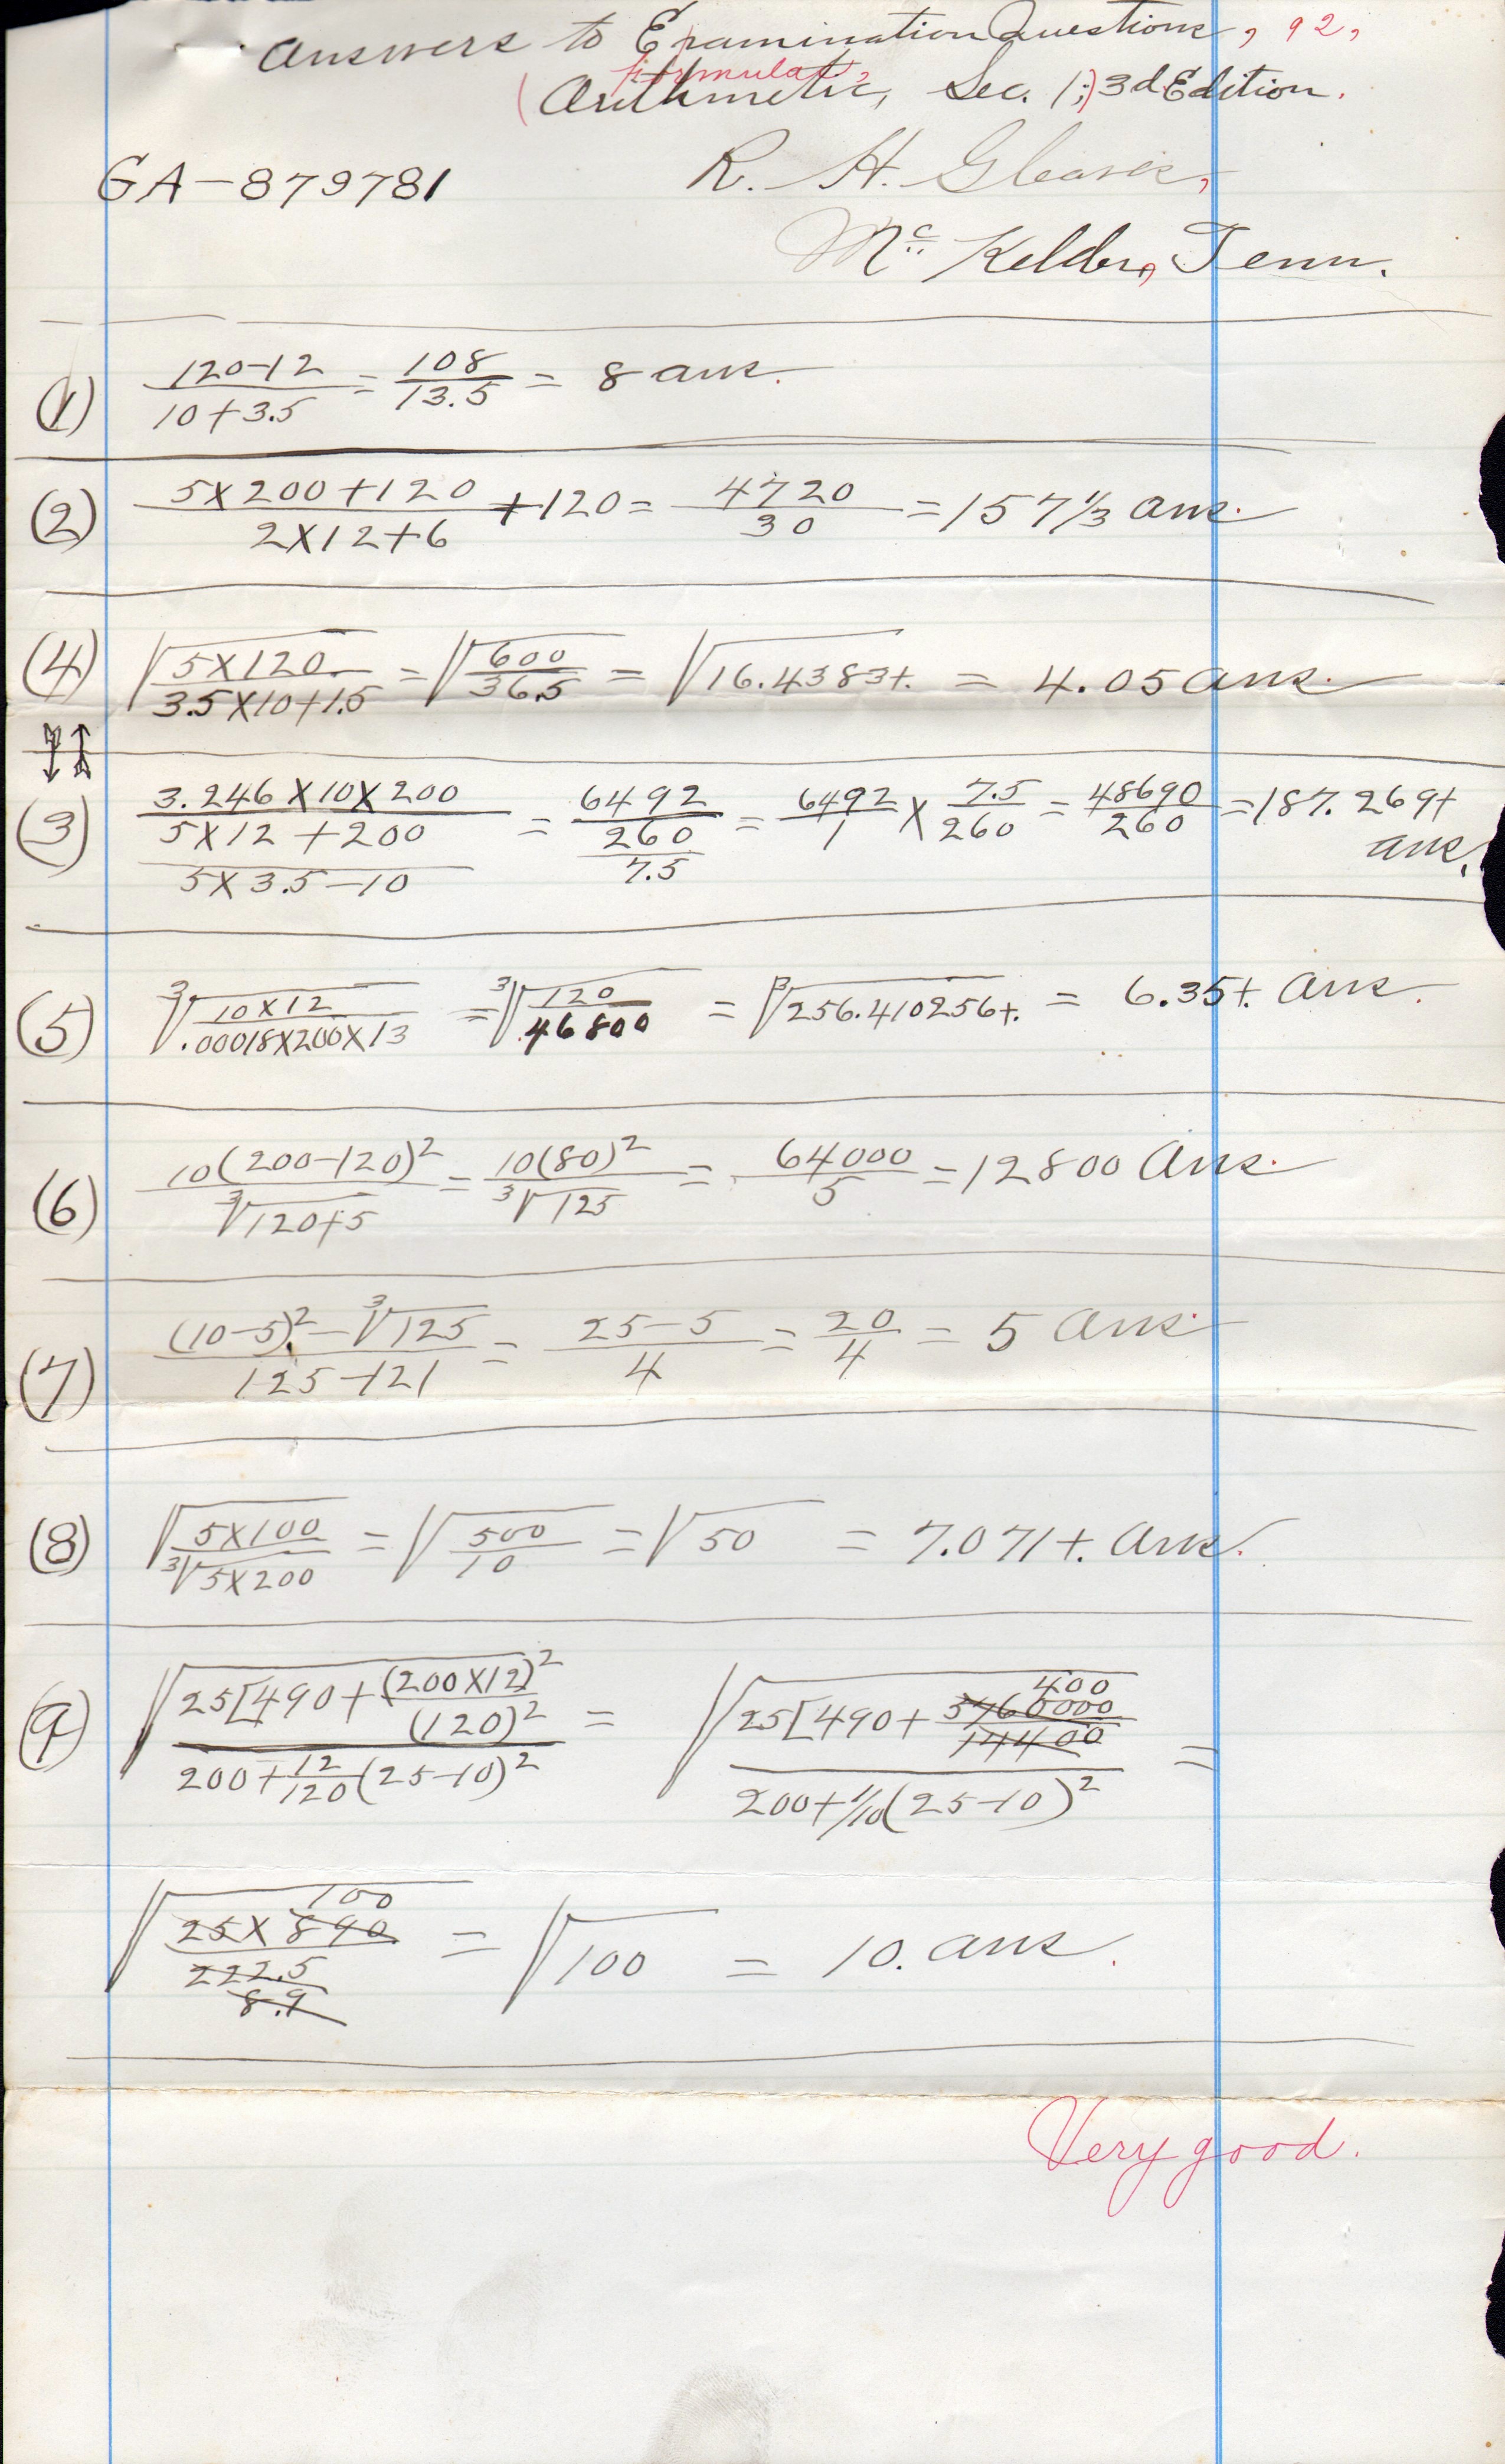 Answers to Examination Questions, 92,
formulas,
(Arithmetic, Sec. 1;) 3d Edition.
GA-879781
R. H. Gleaves,
Mc Kelder, Tenn.
(1) (120-12)/(10+3.5) = 108/13.5 = 8 ans.
(2) (5×200+120)/(2×12+6) + 120 = 4720/30 = 157 1/3 ans.
(4) √((5×120)/(3.5×10+1.5)) = √(600/36.5) = √16.4383+. = 4.05 ans.
(3) (3.246×10×200)/((5×12+200)/(5×3.5-10)) = 6492/(260/7.5) = 6492/1 × 7.5/260 = 48690/260 = 187.269+
ans.
(5) ∛((10×12)/(.00018×200×13)) = ∛(120/.46800) = ∛256.410256+. = 6.35+. ans.
(6) 10(200-120)²/∛(120+5) = 10(80)²/∛125 = 64000/5 = 12800 Ans.
(7) ((10-5)²-∛125)/(125-121) = (25-5)/4 = 20/4 = 5 ans.
(8) √((5×100)/∛(5×200)) = √(500/10) = √50 = 7.071+. Ans.
(9) √(25[490+(200×12)²/(120)²/(200+12/120(25-10)²) = √(25[490+ 400 5760000/14400/(200+1/10(25-10)²) =
√(25×890 100/222.5 8.9) = √100 = 10. ans.
Very good.